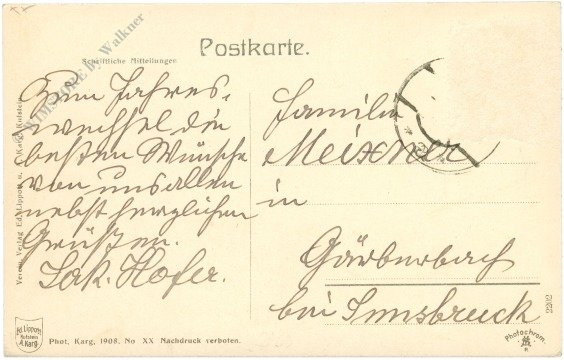 Postkarte.
Schriftliche Mitteilungen
Zum Jahres-
wechsel die
besten Wünsche
von uns allen
nebst herzlichen
Grüßen.
Jak. Hofer.
Familie
Meixner
in
Gärberbach
bei Innsbruck
Phot. Karg, 1908. No XX Nachdruck verboten.
Ed. Lippott
Kufstein
A. Karg
Photochrom.
2202
Verein. Verlag Ed. Lippott u. A. Karg Kufstein
by Walkner